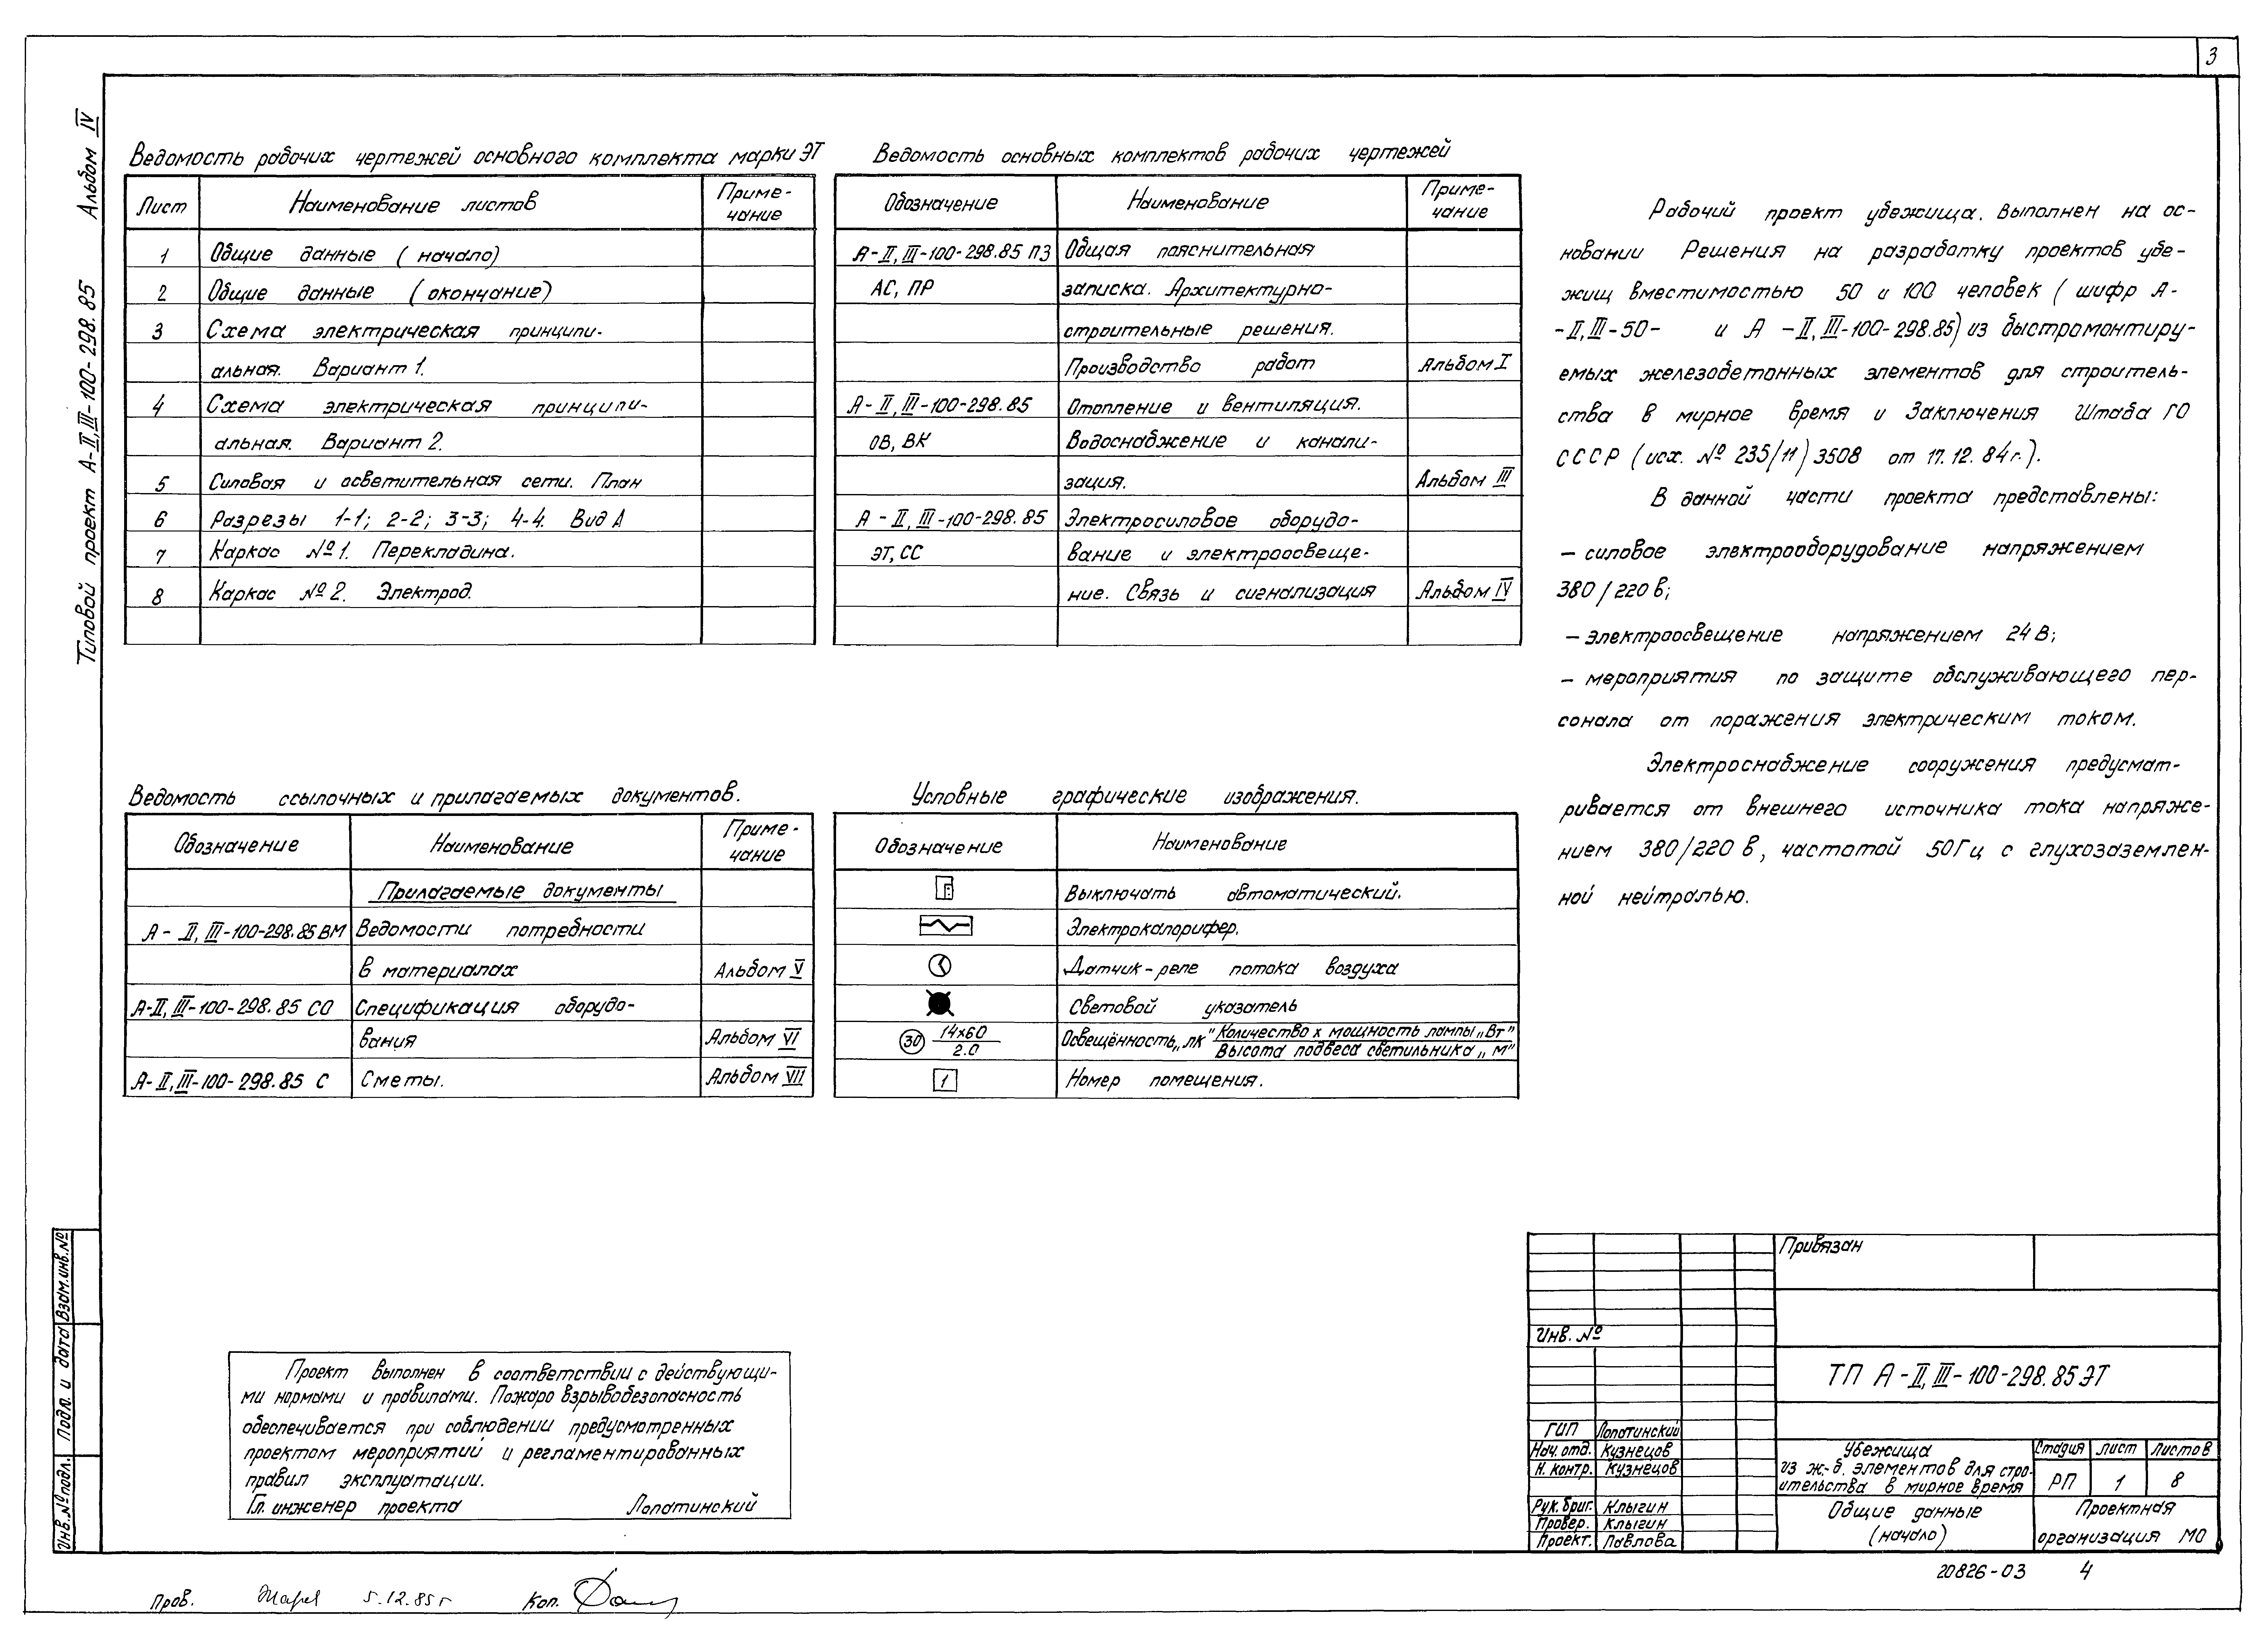 3
Альбом IV
Типовой проект А-II,III-100-298.85
Ведомость рабочих чертежей основного комплекта марки ЭТ
Лист Наименование листов Приме-
чание
1 Общие данные (начало)
2 Общие данные (окончание)
3 Схема электрическая принципи-
альная. Вариант 1.
4 Схема электрическая принципи-
альная. Вариант 2.
5 Силовая и осветительная сети. План
6 Разрезы 1-1; 2-2; 3-3; 4-4. Вид А
7 Каркас №1. Перекладина.
8 Каркас №2. Электрод.
Ведомость основных комплектов рабочих чертежей
Обозначение Наименование Приме-
чание
А-II,III-100-298.85 ПЗ Общая пояснительная
АС, ПР записка. Архитектурно-
строительные решения.
Производство работ Альбом I
А-II,III-100-298.85 Отопление и вентиляция.
ОВ, ВК Водоснабжение и канали-
зация. Альбом III
А-II,III-100-298.85 Электросиловое оборудо-
ЭТ, СС вание и электроосвеще-
ние. Связь и сигнализация Альбом IV
Рабочий проект убежища. Выполнен на ос-
новании Решения на разработку проектов убе-
жищ вместимостью 50 и 100 человек (шифр А-
-II,III-50- и А -II,III-100-298.85) из быстромонтиру-
емых железобетонных элементов для строитель-
ства в мирное время и Заключения Штаба ГО
СССР (исх. № 235/11) 3508 от 17.12.84г.).
В данной части проекта представлены:
- силовое электрооборудование напряжением
380/220 в;
- электроосвещение напряжением 24 В;
- мероприятия по защите обслуживающего пер-
сонала от поражения электрическим током.
Электроснабжение сооружения предусмат-
ривается от внешнего источника тока напряже-
нием 380/220 в, частотой 50Гц с глухозаземлен-
ной нейтралью.
Ведомость ссылочных и прилагаемых документов.
Обозначение Наименование Приме-
чание
Прилагаемые документы
А-II,III-100-298.85 ВМ Ведомости потребности
в материалах Альбом V
А-II,III-100-298.85 СО Спецификация оборудо-
вания Альбом VI
А-II,III-100-298.85 С Сметы. Альбом VII
Условные графические изображения.
Обозначение Наименование
Выключать автоматический.
Электрокалорифер.
Датчик-реле потока воздуха
Световой указатель
30 14х60 Освещённость,,лк" Количество х мощность лампы,,Вт"
2.0 Высота подвеса светильника,,м"
1 Номер помещения.
Проект выполнен в соответствии с действующи-
ми нормами и правилами. Пожаро взрывобезопасность
обеспечивается при соблюдении предусмотренных
проектом мероприятий и регламентированных
правил эксплуатации.
Гл. инженер проекта Лопатинский
Взам.инв.№
Подп. и дата
Инв.№подл.
Привязан
Инв. №
ТП А-II,III-100-298.85 ЭТ
ГИП Лопатинский
Нач. отд. Кузнецов
Н. контр. Кузнецов
Рук. бриг. Клыгин
Провер. Клыгин
Проект. Павлова
Убежища
из ж.-б. элементов для стро-
ительства в мирное время
Стадия Лист Листов
РП 1 8
Общие данные
(начало)
Проектная
организация МО
20826-03 4
Пров. 5.12.85г Коп.